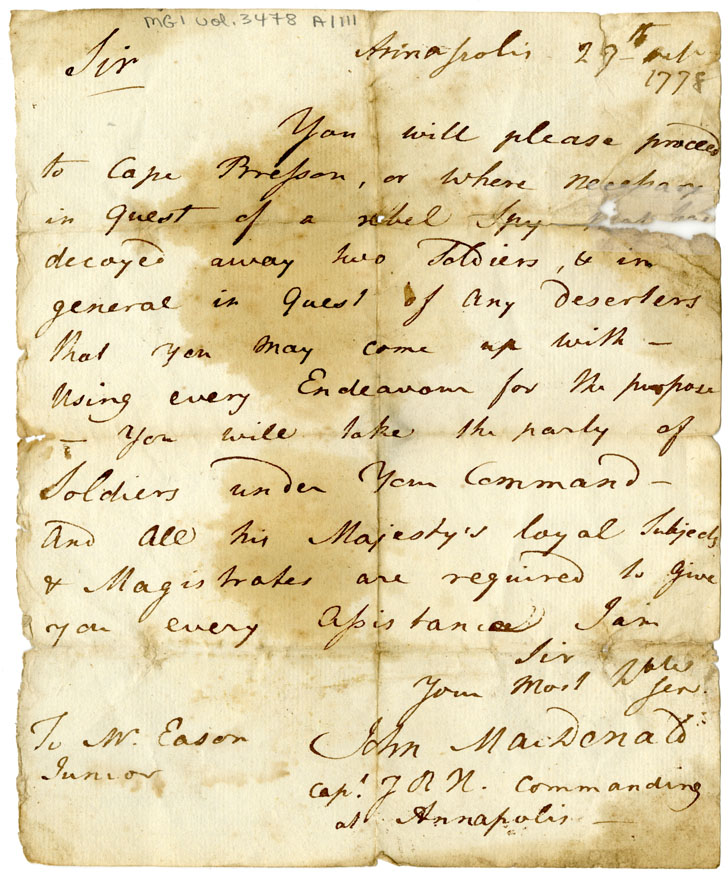 MG1 vol. 3478 A/111
Sir
Annapolis 29th
1778
You will please proceed
to Cape Bresson, or where necessary
in Quest of a rebel Spy
decoyed away two Soldiers, & in
general in Quest of any deserters
that you may come up with —
Using every Endeavour for the purpose
— You will take the party of
Soldiers under Your Command —
And All his Majesty's loyal Subjects
& Magistrates are required to give
you every Assistance I am
Sir
Your Most Hble
Ser.
John MacDonald
To Mr. Eason
Junior
Capt. J R H. Commanding
at Annapolis —